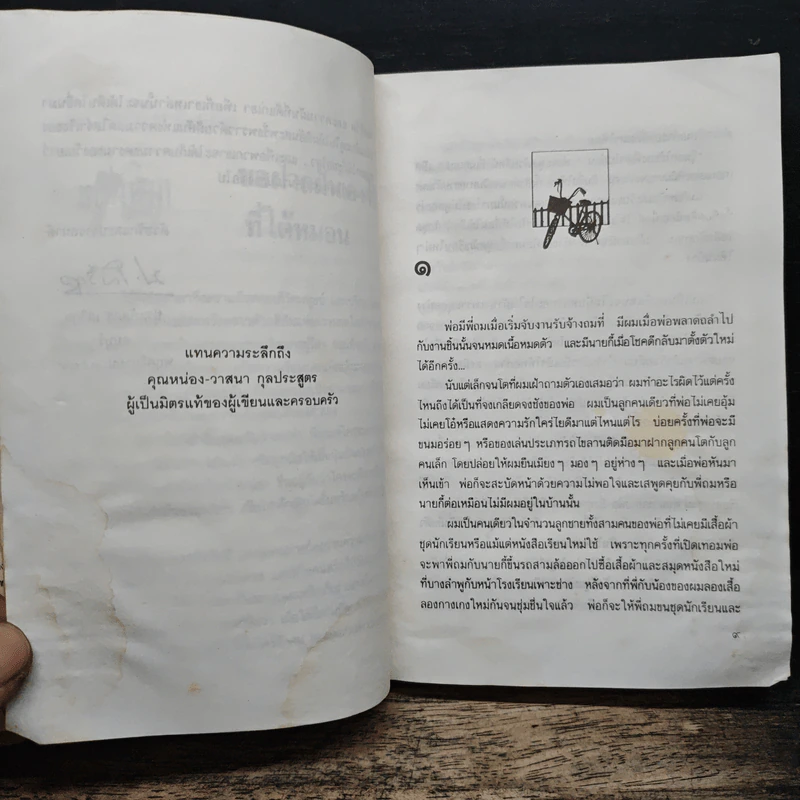 แทนความระลึกถึง
คุณหน่อง-วาสนา กุลประสูตร
ผู้เป็นมิตรแท้ของผู้เขียนและครอบครัว
๑
พ่อมีพี่ถมเมื่อเริ่มจับงานรับจ้างถมที่ มีผมเมื่อพ่อพลาดถลำไป
กับงานชิ้นนั้นจนหมดเนื้อหมดตัว และมีนายกี้เมื่อโชคดีกลับมาตั้งตัวใหม่
ได้อีกครั้ง...
นับแต่เล็กจนโตที่ผมเฝ้าถามตัวเองเสมอว่า ผมทำอะไรผิดไว้แต่ครั้ง
ไหนถึงได้เป็นที่จงเกลียดจงชังของพ่อ ผมเป็นลูกคนเดียวที่พ่อไม่เคยอุ้ม
ไม่เคยโอ๋หรือแสดงความรักใคร่ไยดีมาแต่ไหนแต่ไร บ่อยครั้งที่พ่อจะมี
ขนมอร่อยๆ หรือของเล่นประเภทรถไขลานติดมือมาฝากลูกคนโตกับลูก
คนเล็ก โดยปล่อยให้ผมยืนเมียงๆ มองๆ อยู่ห่างๆ และเมื่อพ่อหันมา
เห็นเข้า พ่อก็จะสะบัดหน้าด้วยความไม่พอใจและเสพูดคุยกับพี่ถมหรือ
นายกี้ต่อเหมือนไม่มีผมอยู่ในบ้านนั้น
ผมเป็นคนเดียวในจำนวนลูกชายทั้งสามคนของพ่อที่ไม่เคยมีเสื้อผ้า
ชุดนักเรียนหรือแม้แต่หนังสือเรียนใหม่ใช้ เพราะทุกครั้งที่เปิดเทอมพ่อ
จะพาพี่ถมกับนายกี้ขึ้นรถสามล้อออกไปซื้อเสื้อผ้าและสมุดหนังสือใหม่
ที่บางลำพูกับหน้าโรงเรียนเพาะช่าง หลังจากที่พี่กับน้องของผมลองเสื้อ
ลองกางเกงใหม่กันจนชุ่มชื่นใจแล้ว พ่อก็จะให้พี่ถมขนชุดนักเรียนและ
๙